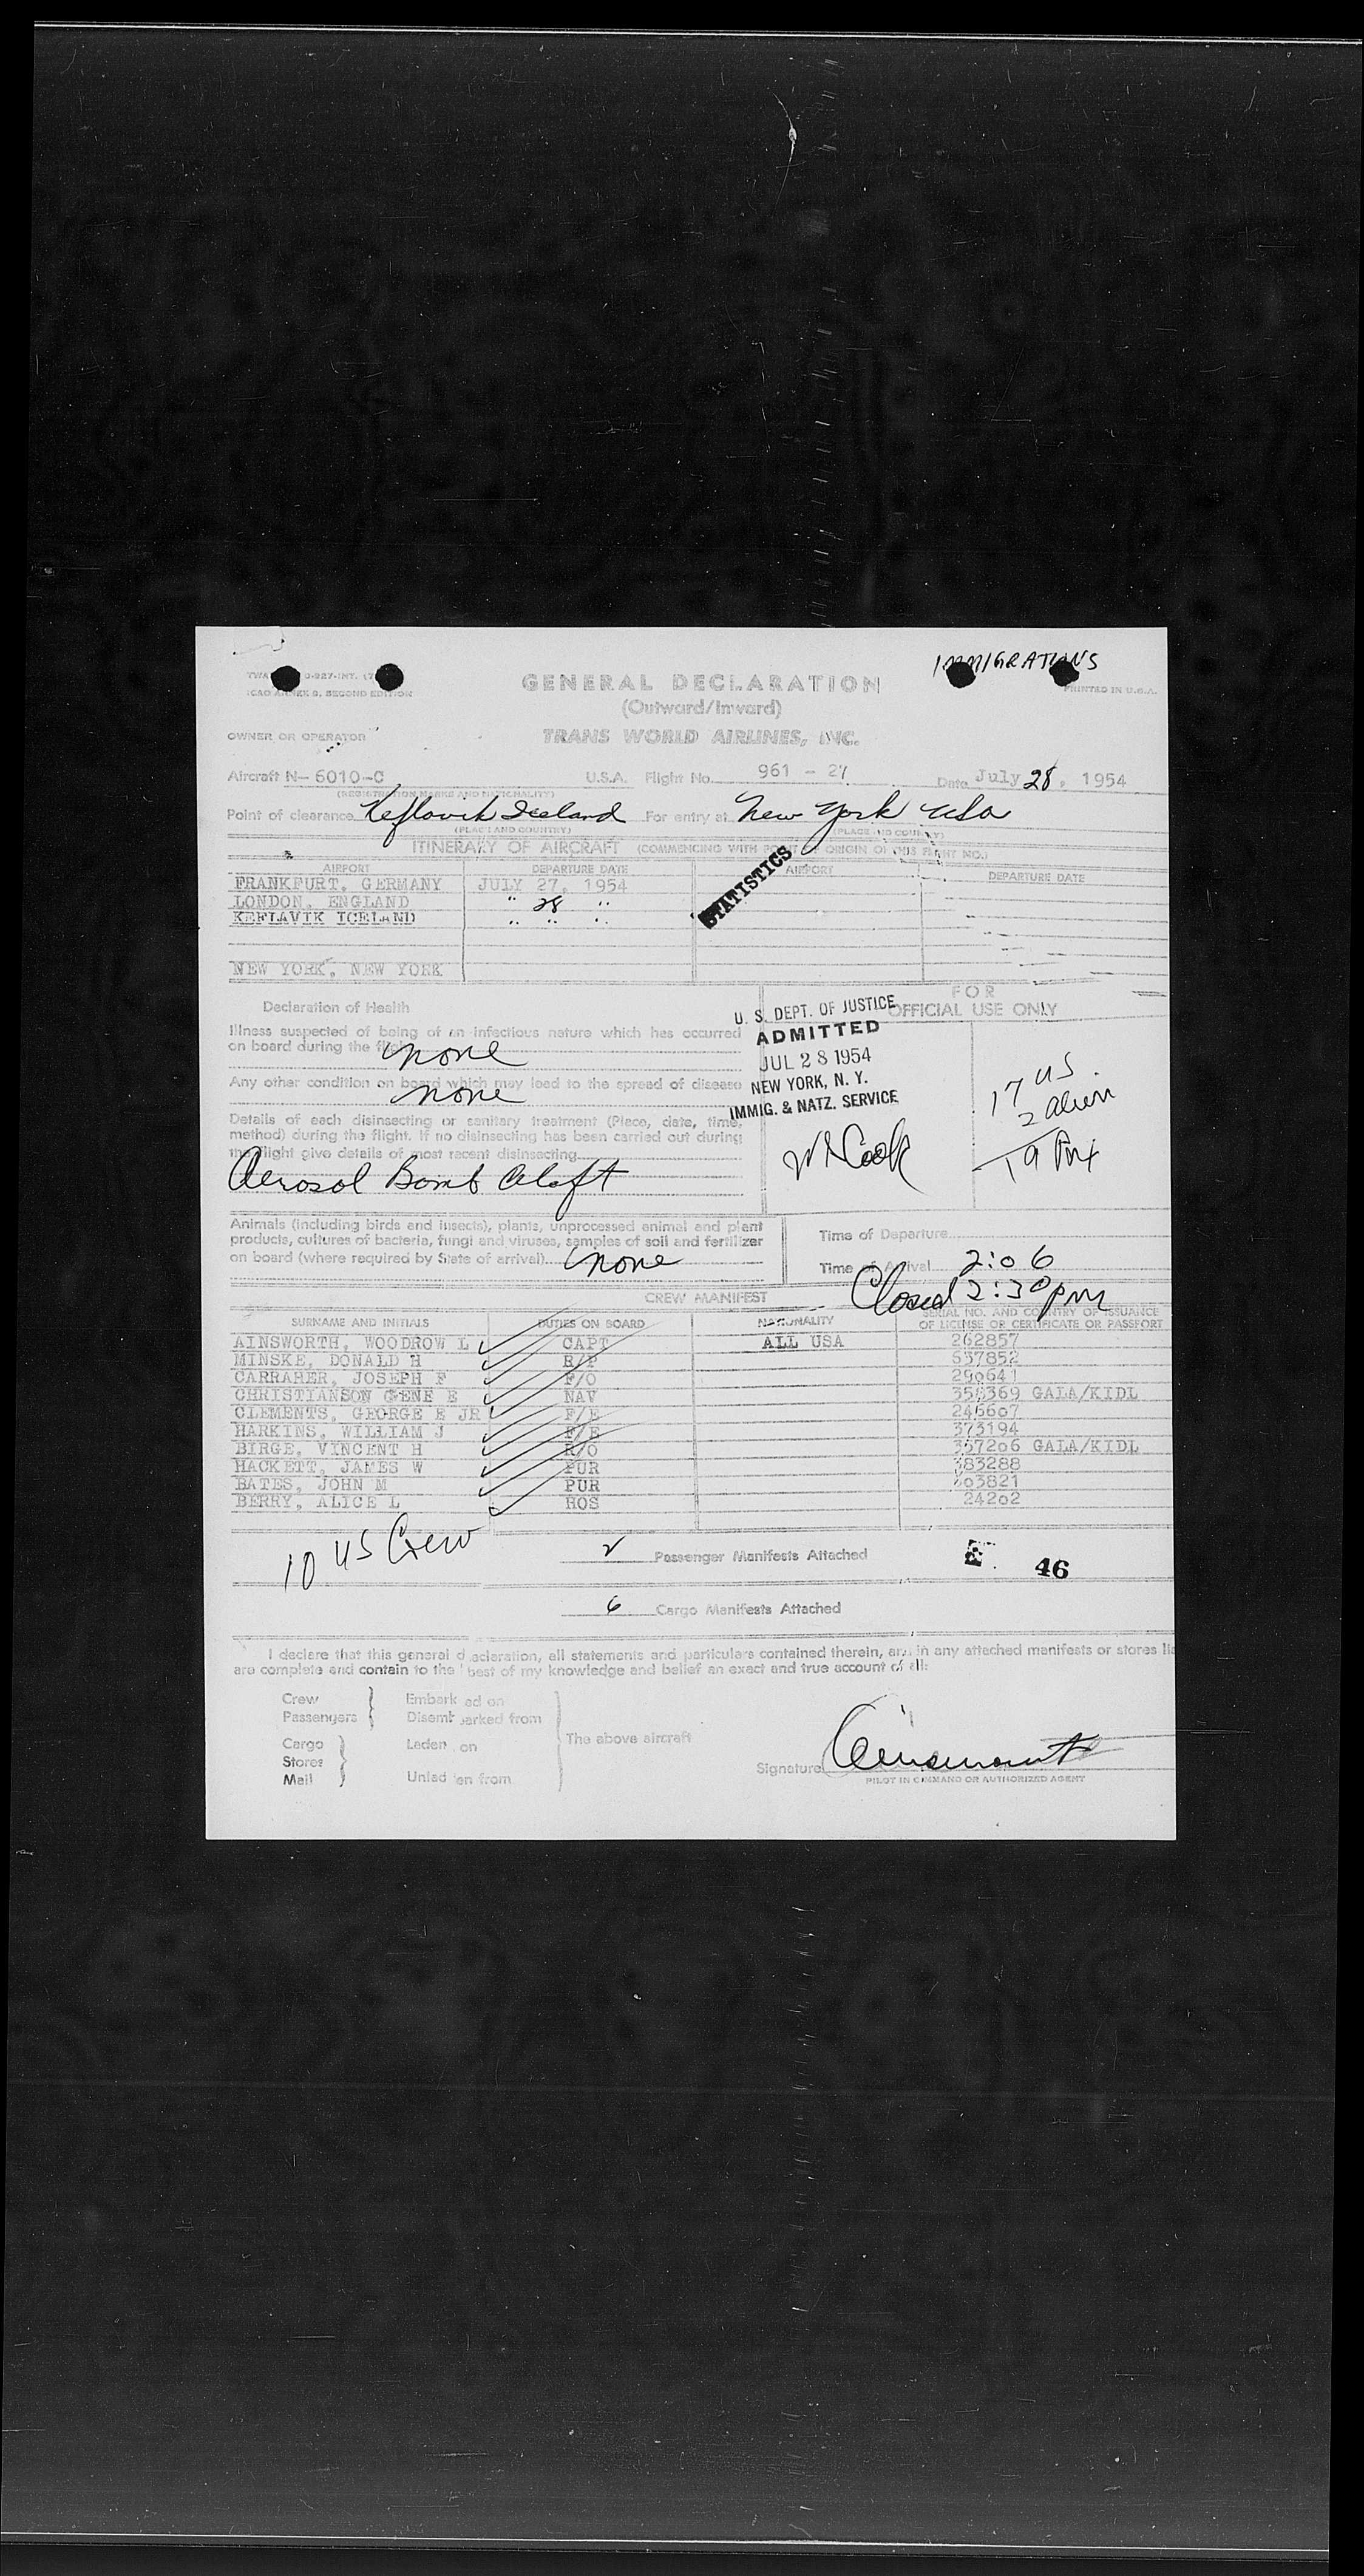 IMMIGRATIONS
ICAO ANNEX 9, SECOND EDITION
PRINTED IN U.S.A.
GENERAL DECLARATION
(Outward/Inward)
OWNER OR OPERATOR TRANS WORLD AIRLINES, INC.
Aircraft N- 6010-C U.S.A. Flight No. 961 - 27 Date July 28, 1954
(REGISTRATION MARKS AND NATIONALITY)
Point of clearance Keflavik Iceland For entry at New York USA
(PLACE AND COUNTRY) (PLACE AND COUNTRY)
ITINERARY OF AIRCRAFT (COMMENCING WITH POINT OF ORIGIN OF THIS FLIGHT NO.)
AIRPORT DEPARTURE DATE AIRPORT DEPARTURE DATE
STATISTICS
FRANKFURT, GERMANY JULY 27, 1954
LONDON, ENGLAND " 28 "
KEFLAVIK ICELAND " " "
NEW YORK, NEW YORK
Declaration of Health
Illness suspected of being of an infectious nature which has occurred
on board during the flight none
Any other condition on board which may lead to the spread of disease
none
Details of each disinsecting or sanitary treatment (Place, date, time,
method) during the flight. If no disinsecting has been carried out during
the flight give details of most recent disinsecting
Aerosol Bomb Aloft
FOR
OFFICIAL USE ONLY
U. S. DEPT. OF JUSTICE
ADMITTED
JUL 28 1954
NEW YORK, N. Y.
IMMIG. & NATZ. SERVICE
Cook
17 US
2 alien
19
Animals (including birds and insects), plants, unprocessed animal and plant
products, cultures of bacteria, fungi and viruses, samples of soil and fertilizer
on board (where required by State of arrival) none
Time of Departure
Time of Arrival 2:06
Closed 2:30 pm
CREW MANIFEST
SURNAME AND INITIALS DUTIES ON BOARD NATIONALITY SERIAL NO. AND COUNTRY OF ISSUANCE
OF LICENSE OR CERTIFICATE OR PASSPORT
AINSWORTH, WOODROW L CAPT ALL USA 262857
MINSKE, DONALD H R/P 637852
CARRAHER, JOSEPH F F/O 290641
CHRISTIANSON GENE E NAV 358369 GALA/KIDL
CLEMENTS, GEORGE E JR F/E 246607
HARKINS, WILLIAM J F/E 373194
BIRGE, VINCENT H R/O 357206 GALA/KIDL
HACKETT, JAMES W PUR 383288
BATES, JOHN M PUR 03821
BERRY, ALICE L HOS 24202
10 US Crew
2 Passenger Manifests Attached
46
6 Cargo Manifests Attached
I declare that this general declaration, all statements and particulars contained therein, and in any attached manifests or stores
are complete and contain to the best of my knowledge and belief an exact and true account of all:
Crew Embarked on
Passengers Disembarked from
The above aircraft
Cargo Laden on
Stores
Mail Unladen from
Signature Ainsworth
PILOT IN COMMAND OR AUTHORIZED AGENT